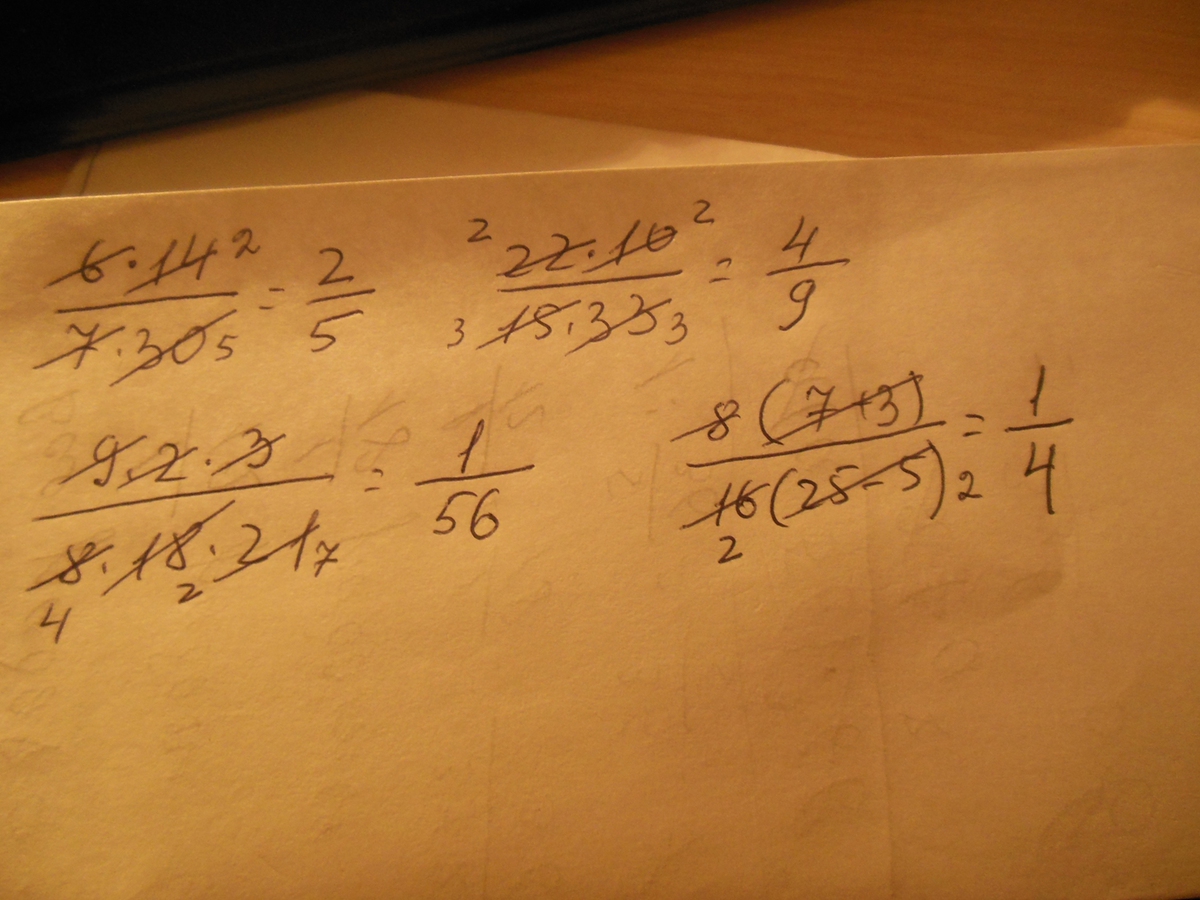 6·14 2 / 7·30 5 = 2/5   2 22·10 2 / 3 15·33 3 = 4/9
9·2·3 / 8·18·21 7 = 1/56   8(7+3) / 16(25-5) 2 = 1/4
4 2   2